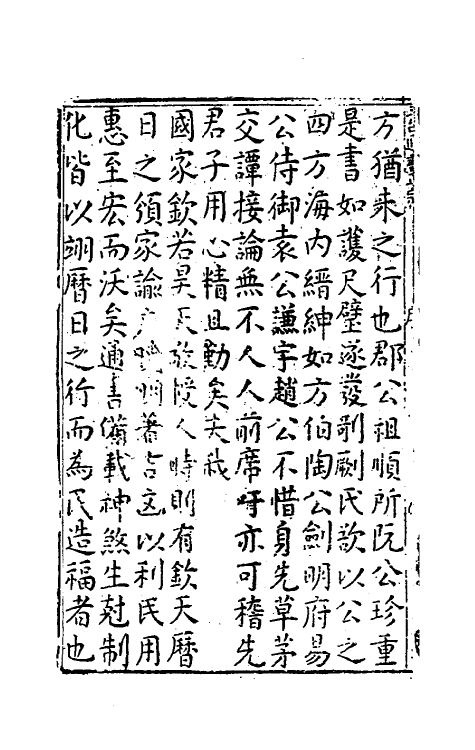 方猶未之行也郡公祖順所阮公珍重
是書如護尺璧遂發剞劂氏欲以公之
四方海内縉紳如方伯陶公劍明府易
公侍御袁公謙宇趙公不惜身先草茅
交譚接論無不人人前席吁亦可稽先
君子用心精且勤矣夫我
國家欽若昊天敬授人時則有欽天曆
日之頒家諭户曉明著吉凶以利民用
惠至宏而沃矣通書備載神煞生尅制
化皆以翊曆日之行而為民造福者也